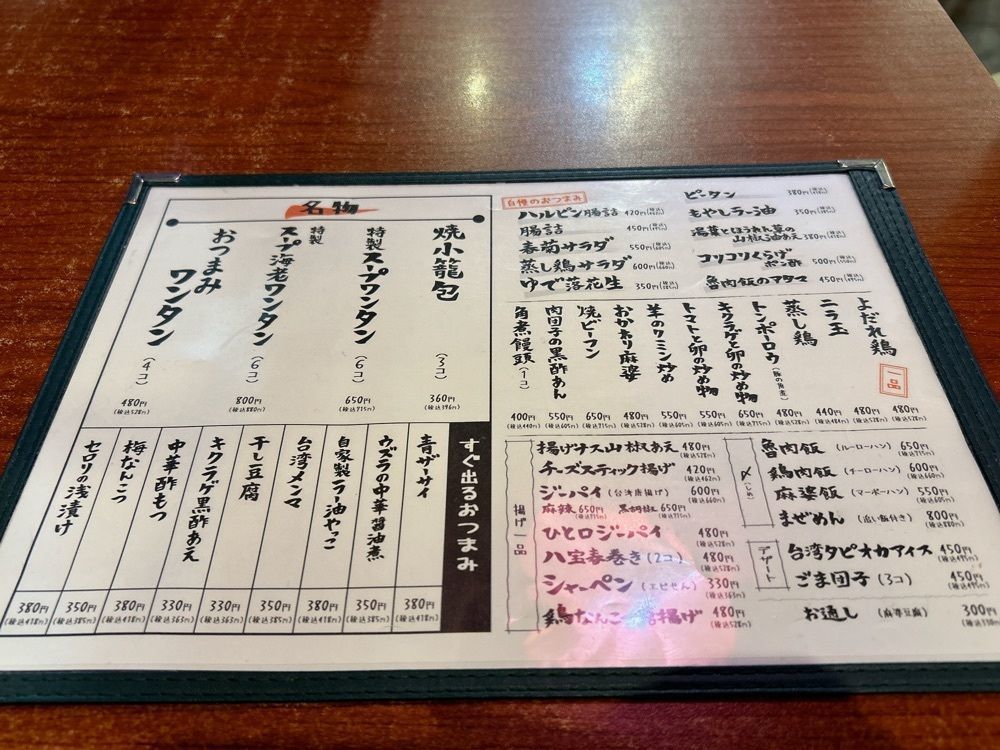 名物
焼小籠包 (3コ) 360円 (税込396円)
特製スープワンタン (6コ) 650円 (税込715円)
特製スープ海老ワンタン (6コ) 800円 (税込880円)
おつまみワンタン (4コ) 480円 (税込528円)
すぐ出るおつまみ
青ザーサイ 380円 (税込418円)
ウズラの中華醤油煮 350円 (税込385円)
自家製ラー油やっこ 380円 (税込418円)
台湾メンマ 350円 (税込385円)
干し豆腐 330円 (税込363円)
キクラゲ黒酢あえ 330円 (税込363円)
中華酢もつ 380円 (税込418円)
梅なんこつ 350円 (税込385円)
セロリの浅漬け 380円 (税込418円)
自慢のおつまみ
ハルピン腸詰 420円
腸詰 450円
春菊サラダ 550円
蒸し鶏サラダ 600円
ゆで落花生 350円
ピータン 380円
もやしラー油 350円
湯葉とほうれん草の
山椒油あえ 380円
コリコリくらげ
ポン酢 500円
魯肉飯のアタマ 450円
一品
よだれ鶏 480円 (税込528円)
ニラ玉 480円 (税込528円)
蒸し鶏 440円 (税込484円)
トンポーロウ (豚の角煮) 480円 (税込528円)
キクラゲと卵の炒め物 650円 (税込715円)
トマトと卵の炒め物 550円 (税込605円)
羊のクミン炒め 550円 (税込605円)
おかわり麻婆 480円 (税込528円)
焼ビーフン 650円 (税込715円)
肉団子の黒酢あん 550円 (税込605円)
角煮饅頭 (1コ) 400円 (税込440円)
揚げ一品
揚げナス山椒あえ 480円 (税込528円)
チーズスティック揚げ 420円 (税込462円)
ジーパイ (台湾唐揚げ) 600円 (税込660円)
麻辣 650円 (税込715円) 黒胡椒 650円 (税込715円)
ひと口ジーパイ 480円 (税込528円)
八宝春巻き (2コ) 480円 (税込528円)
シャーペン (エビせん) 330円 (税込363円)
鶏なんこつ唐揚げ 480円 (税込528円)
〆(しめ)
魯肉飯 (ルーローハン) 650円 (税込715円)
鶏肉飯 (チーローハン) 600円 (税込660円)
麻婆飯 (マーボーハン) 550円 (税込605円)
まぜめん (追い飯付き) 800円 (税込880円)
デザート
台湾タピオカアイス 450円 (税込495円)
ごま団子 (3コ) 450円 (税込495円)
お通し (麻婆豆腐) 300円 (税込330円)